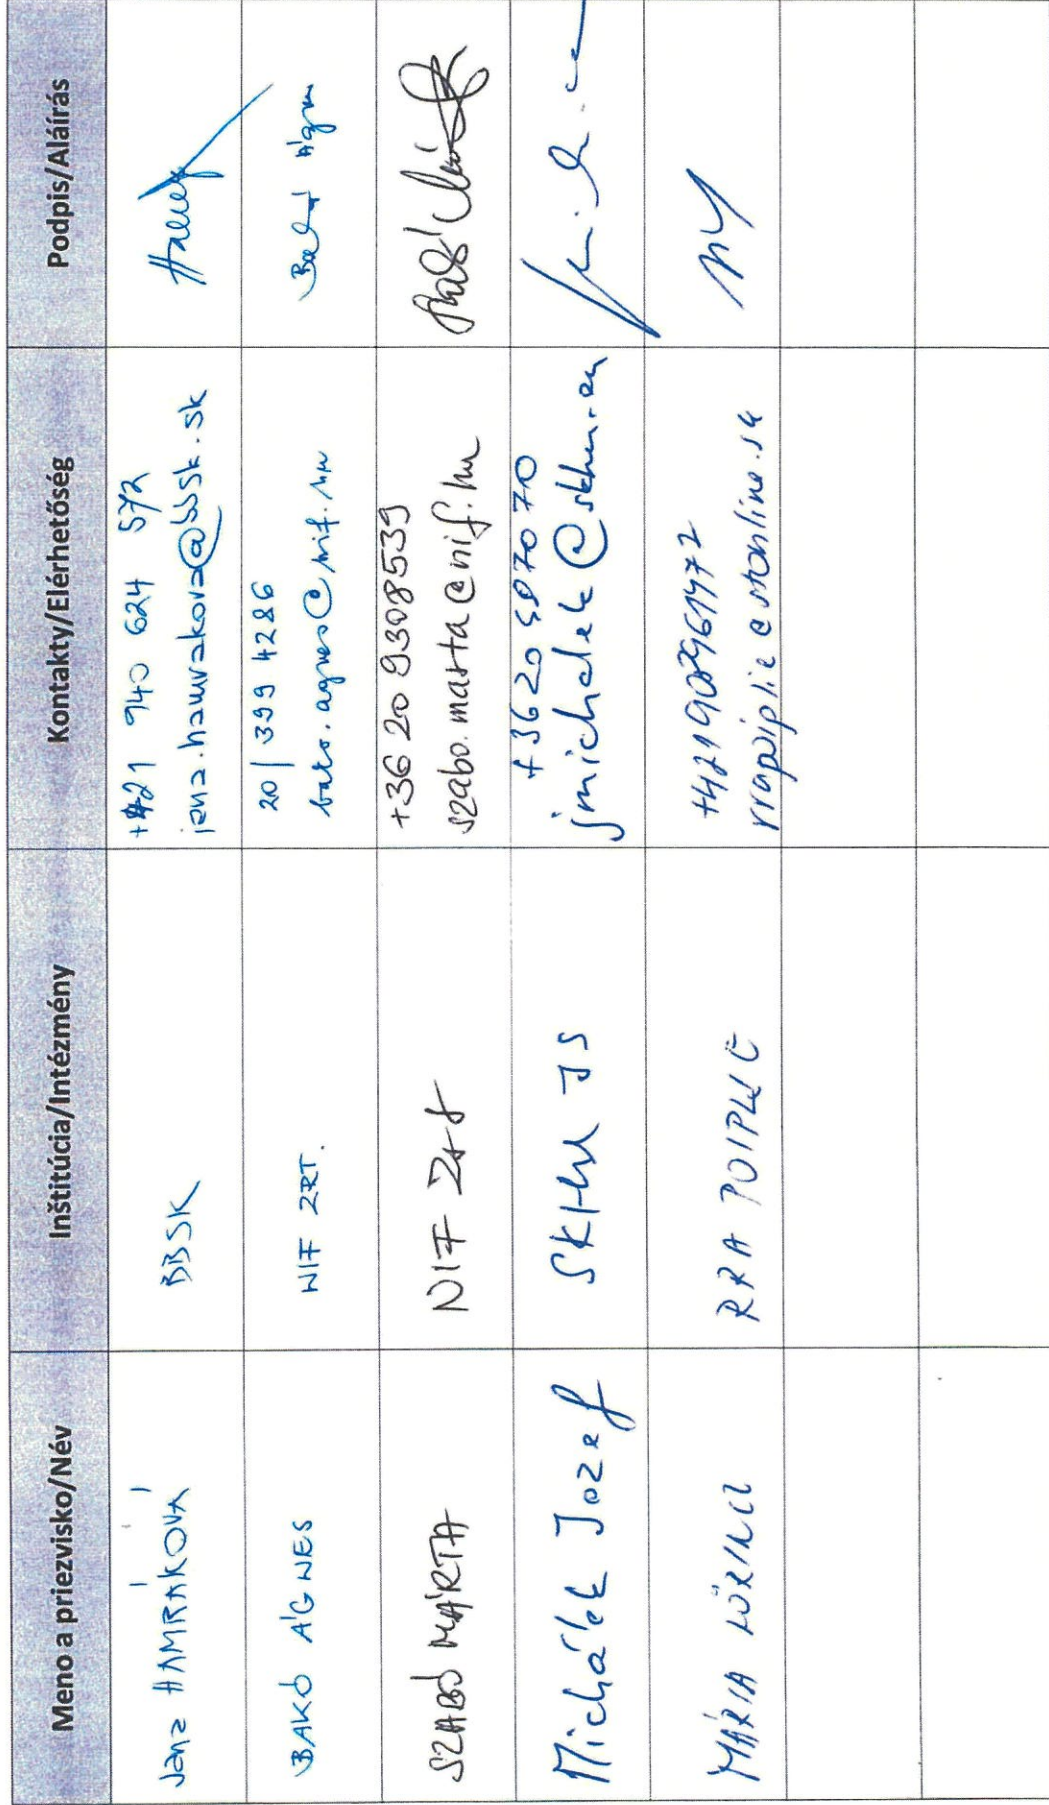 Meno a priezvisko/Név Inštitúcia/Intézmény Kontakty/Elérhetőség Podpis/Aláírás
Jana HAMRÁKOVÁ BBSK +421 940 624 572
jana.hamrakova@bbsk.sk
BAKÓ ÁGNES NIF ZRT. 20/399 4286
bako.agnes@nif.hu Bakó Ágnes
SZABÓ MÁRTA NIF Zrt +36 20 9308539
szabo.marta@nif.hu
Michálek Jozef SKHU JS +3620
jmichalek@skhu.eu
MÁRIA LÖRINCZ RRA POIPLIE